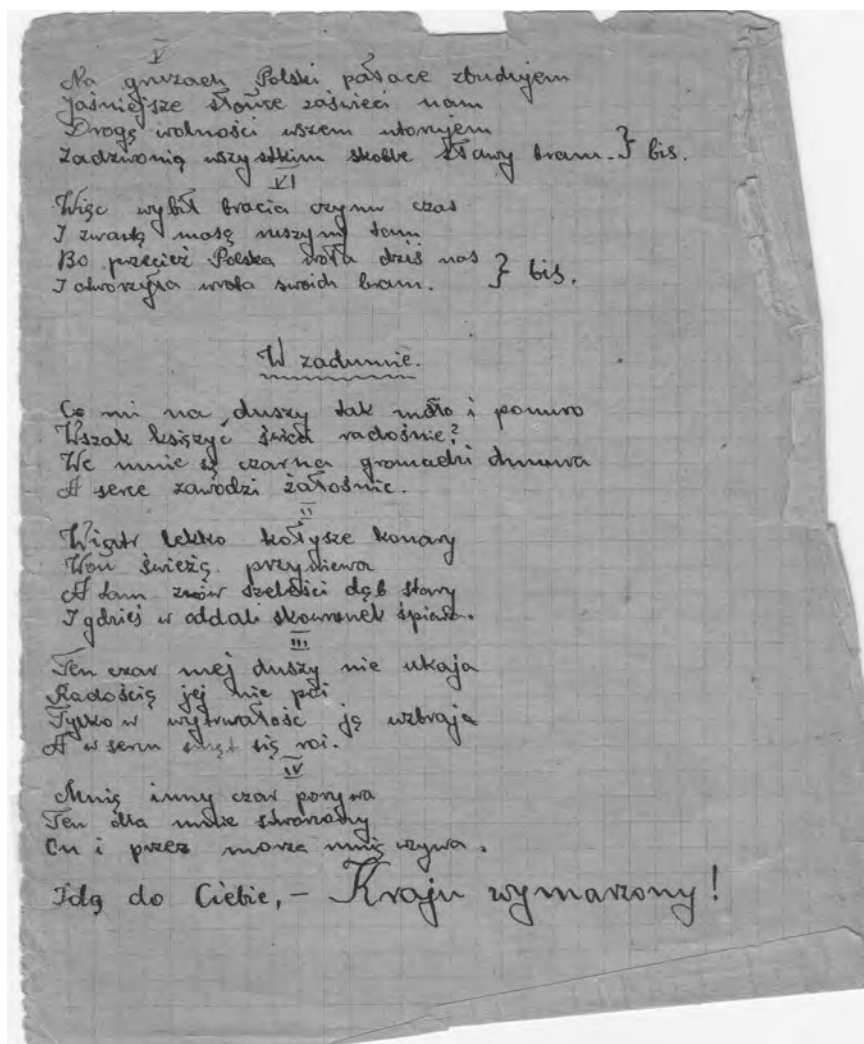 V
Na gruzach Polski pałace zbudujem
Jaśniejsze słońce zaświeci nam
Drogę wolności wszem utorujem
Zadzwonią wszystkim skoble sławy bram. } bis.
VI
Więc wybił bracia czynu czas
I zwartą masą ruszymy tam
Bo przecież Polska woła dziś nas
I otworzyła wrota swoich bram. } bis.
W zadumie.
Co mi na duszy tak mdło i ponuro
Wszak księżyć świeci radośnie?
We mnie są czarna gromadzi chmura
A serce zawodzi żałośnie.
II
Wiatr lekko kołysze konary
Woń świeżą przywiewa
A tam znów szeleści dąb stary
I gdzieś w oddali skowronek śpiewa.
III
Ten czar mej duszy nie ukaja
Radością jej nie poi
Tylko w wytrwałość ją uzbraja
A w sercu smęt się roi.
IV
Mnię inny czar porywa
Ten dla mnie stworzony
On i przez morza mnię wzywa.
Idę do Ciebie, – Kraju wymarzony!